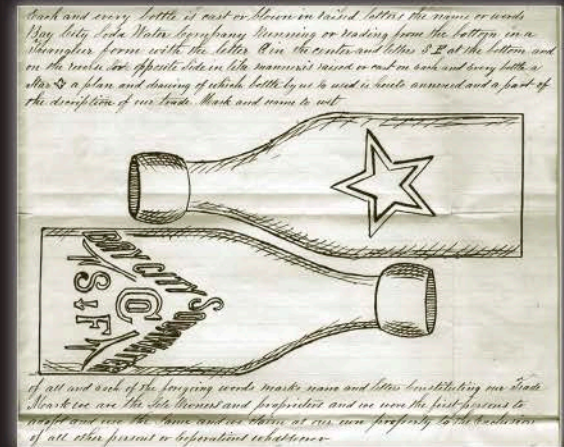 Each and every bottle is cast or blown in raised letters the name or words
Bay City Soda Water Company Running or reading from the bottom in a
Triangular form with the letter C in the center and letters S.F. at the bottom and
on the or opposite side in like manner is raised or cast on each and every bottle a
Star ☆ a plan and drawing of which bottle by us to used is hereto annexed and a part of
the discription of our trade Mark and name to wit
BAY CITY SODA WATER
Co
S & F
of all and each of the foregoing words marks name and letters Constituting our Trade
Mark we are the Sole Owners and proprietors and we were the first persons to
adopt and use the same and we claim as our own property to the Exclusion
of all other persons or Corporations whatsoever